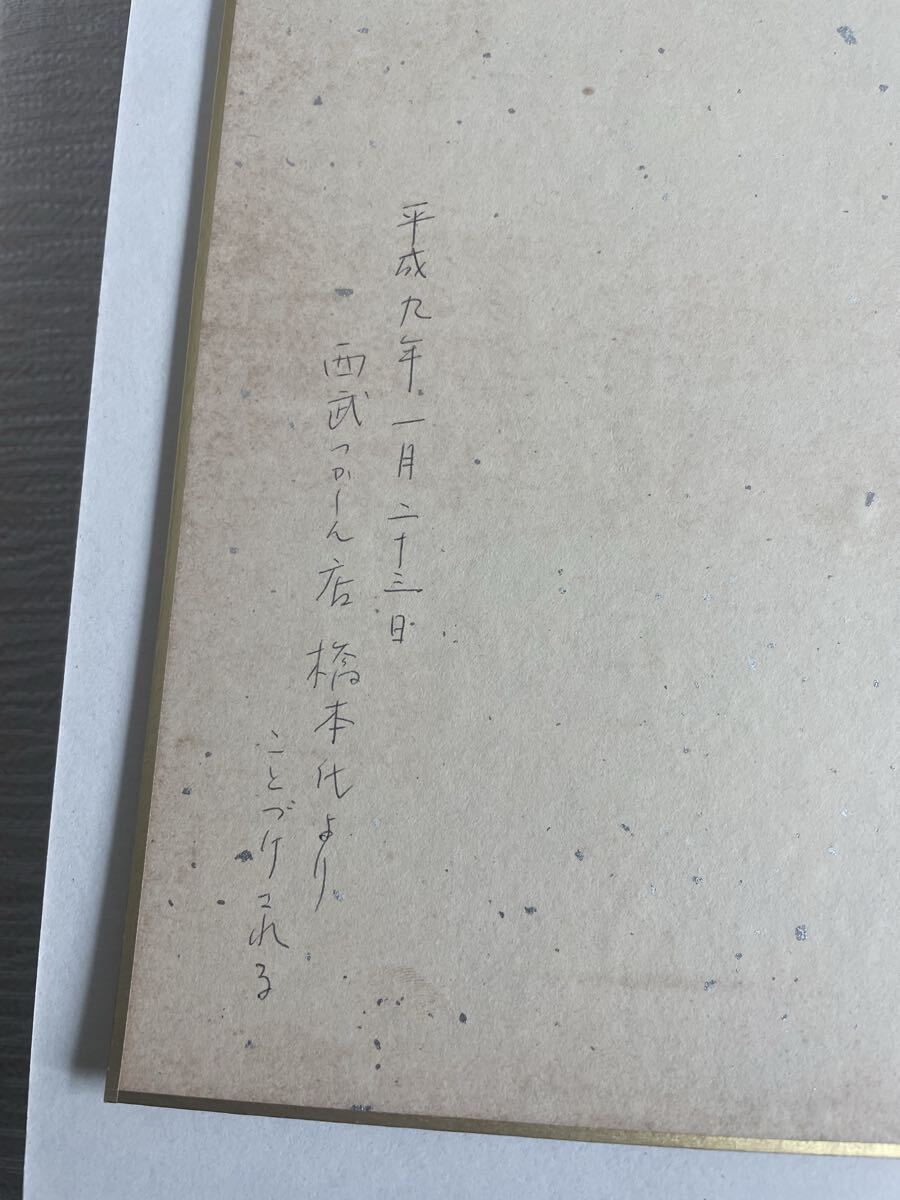 平成九年一月二十三日
西武つかしん店橋本氏より
ことづけされる